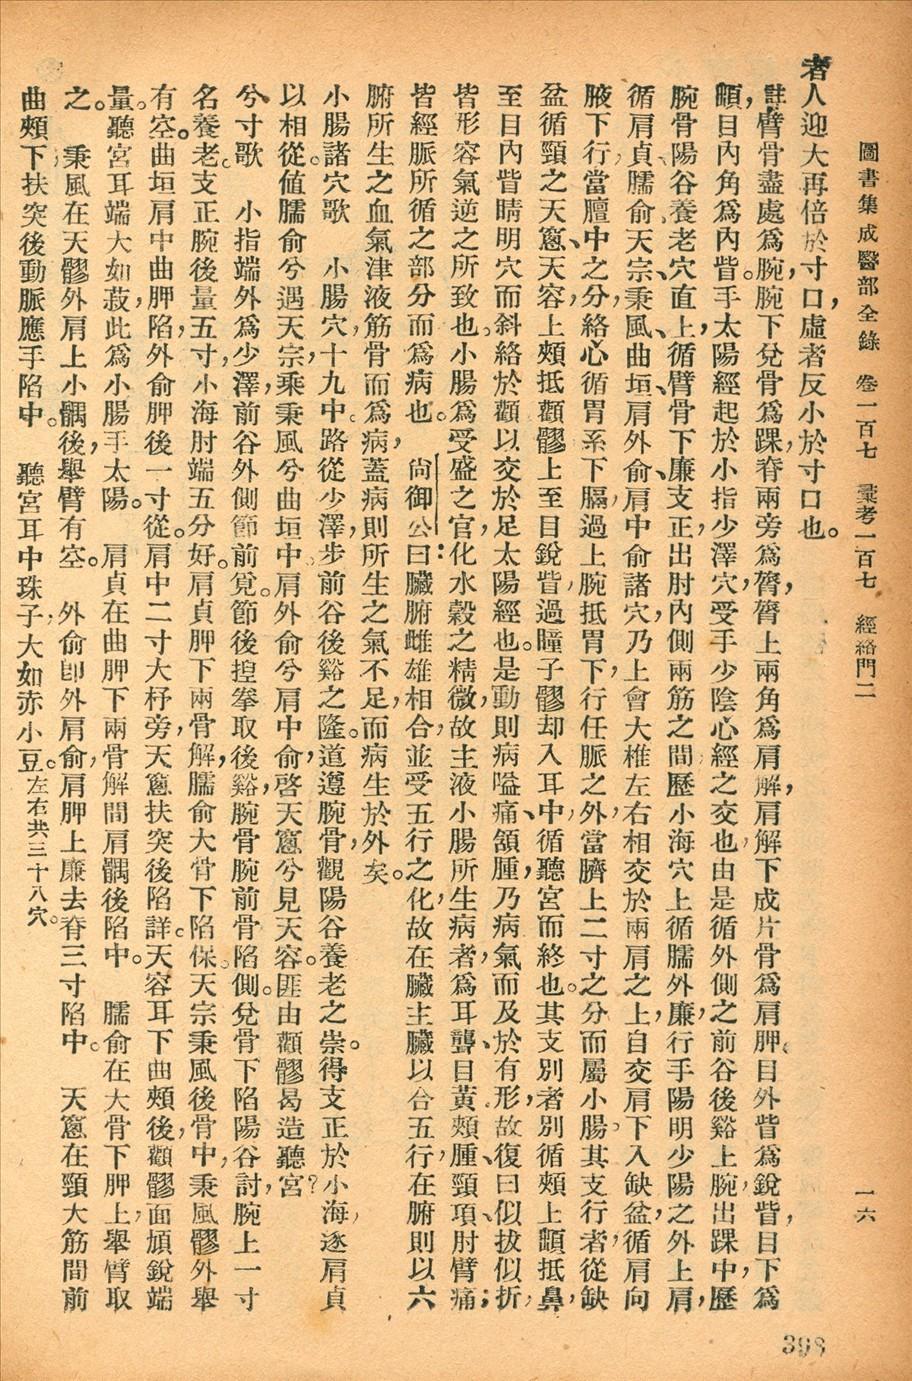 圖書集成醫部全錄　卷一百七　彙考一百七　經絡門二　一六
者人迎大再倍於寸口，虛者反小於寸口也。
註，臂骨盡處爲腕，腕下兌骨爲踝，脊兩旁爲膂，膂上兩角爲肩解，肩解下成片骨爲肩胛，目外眥爲銳眥，目下爲
䪼，目內角爲內眥。手太陽經起於小指少澤穴，受手少陰心經之交也，由是循外側之前谷後谿上腕，出踝中，歷
腕骨陽谷養老穴直上，循臂骨下廉支正，出肘內側兩筋之間，歷小海穴，上循臑外廉，行手陽明少陽之外上肩，
循肩貞、臑俞、天宗、秉風、曲垣、肩外俞、肩中俞諸穴，乃上會大椎，左右相交於兩肩之上，自交肩下入缺盆，循肩向
腋下行，當膻中之分，絡心循胃系下膈，過上腕抵胃下，行任脈之外，當臍上二寸之分而屬小腸，其支行者，從缺
盆循頸之天窻、天容，上頰抵顴髎，上至目銳眥，過瞳子髎却入耳中，循聽宮而終也。其支別者，別循頰上䪼抵鼻，
至目內眥睛明穴而斜絡於顴，以交於足太陽經也。是動則病嗌痛、頷腫，乃病氣而及於有形，故復曰似拔似折，
皆形容氣逆之所致也。小腸爲受盛之官，化水穀之精微，故主液小腸所生病者，爲耳聾、目黃、頰腫、頸項、肘臂痛；
皆經脈所循之部分而爲病也。　尙御公曰：臟腑雌雄相合，並受五行之化，故在臟主臟以合五行，在腑則以六
腑所生之血氣津液筋骨而爲病，蓋病則所生之氣不足，而病生於外矣。
小腸諸穴歌　小腸穴，十九中。路從少澤，步前谷後谿之隆。道遵腕骨，觀陽谷養老之崇。得支正於小海，逐肩貞
以相從。值臑俞兮遇天宗，乘秉風兮曲垣中。肩外俞兮肩中俞，啓天窻兮見天容。匪由顴髎曷造聽宮？
兮寸歌　小指端外爲少澤，前谷外側節前覓。節後揑拳取後谿，腕骨腕前骨陷側。兌骨下陷陽谷討，腕上一寸
名養老。支正腕後量五寸，小海肘端五分好。肩貞胛下兩骨解，臑俞大骨下陷保。天宗秉風後骨中，秉風髎外舉
有空。曲垣肩中曲胛陷，外俞胛後一寸從。肩中二寸大杼旁，天窻扶突後陷詳。天容耳下曲頰後，顴髎面頄銳端
量。聽宮耳端大如菽，此爲小腸手太陽。　肩貞在曲胛下兩骨解間肩髃後陷中。　臑俞在大骨下胛上，舉臂取
之。　秉風在天髎外肩上小髃後，舉臂有空。　外俞卽外肩俞，肩胛上廉去脊三寸陷中。　天窻在頸大筋間前
曲頰下扶突後動脈應手陷中。　聽宮耳中珠子，大如赤小豆。左右共三十八穴。
398